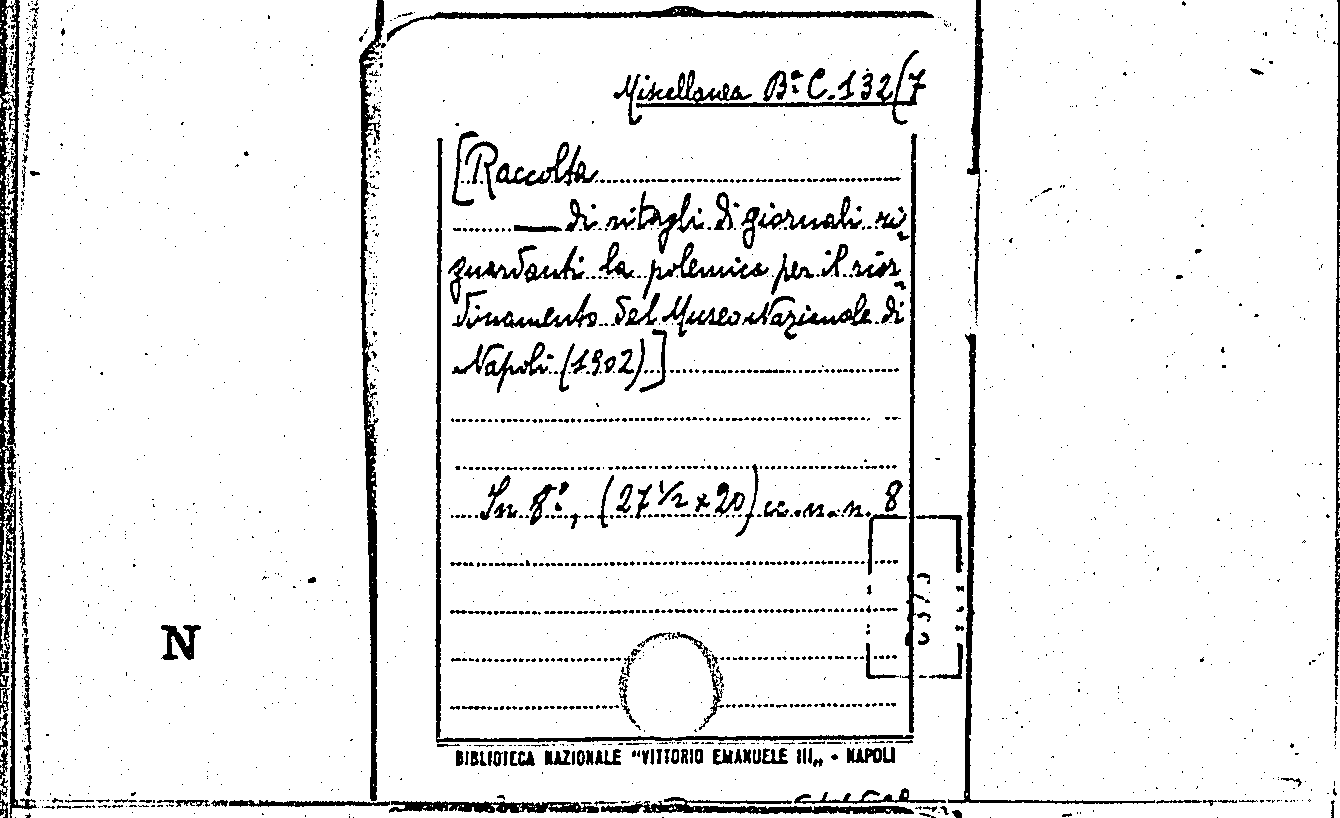 Miscellanea Bª C.132/7
[Raccolta
di ritagli di giornali ri-
guardanti la polemica per il rior-
dinamento del Museo Nazionale di
Napoli (1902)]
In 8º, (27 1/2 x 20) cc.n.n. 8
N
BIBLIOTECA NAZIONALE "VITTORIO EMANUELE III„ - NAPOLI